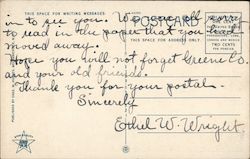 THIS SPACE FOR WRITING MESSAGES
POSTCARD
THIS SPACE FOR ADDRESS ONLY
in to see you. We were all sorry
to read in the paper that you had
moved away.
Hope you will not forget Greene Co.
and your old friends.
Thank you for your postal.
Sincerely
Ethel W. Wright
TWO CENTS